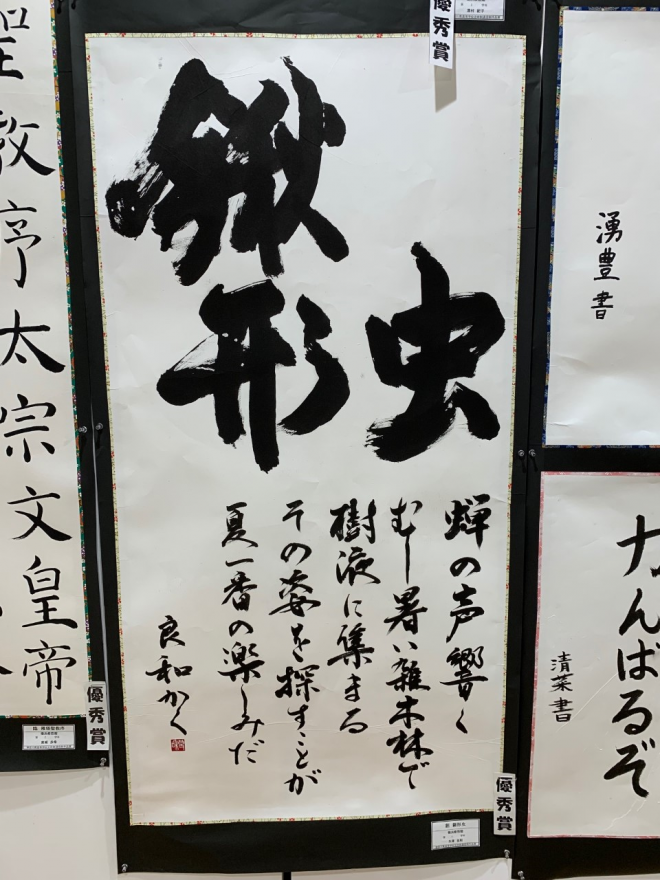 優秀賞
鍬形
虫
蝉の声響く
むし暑い雑木林で
樹液に集まる
その姿を探すことが
夏一番の楽しみだ
良和かく
優秀賞
聖教序太宗文皇帝
優秀賞
湧豊書
がんばるぞ
清菜書